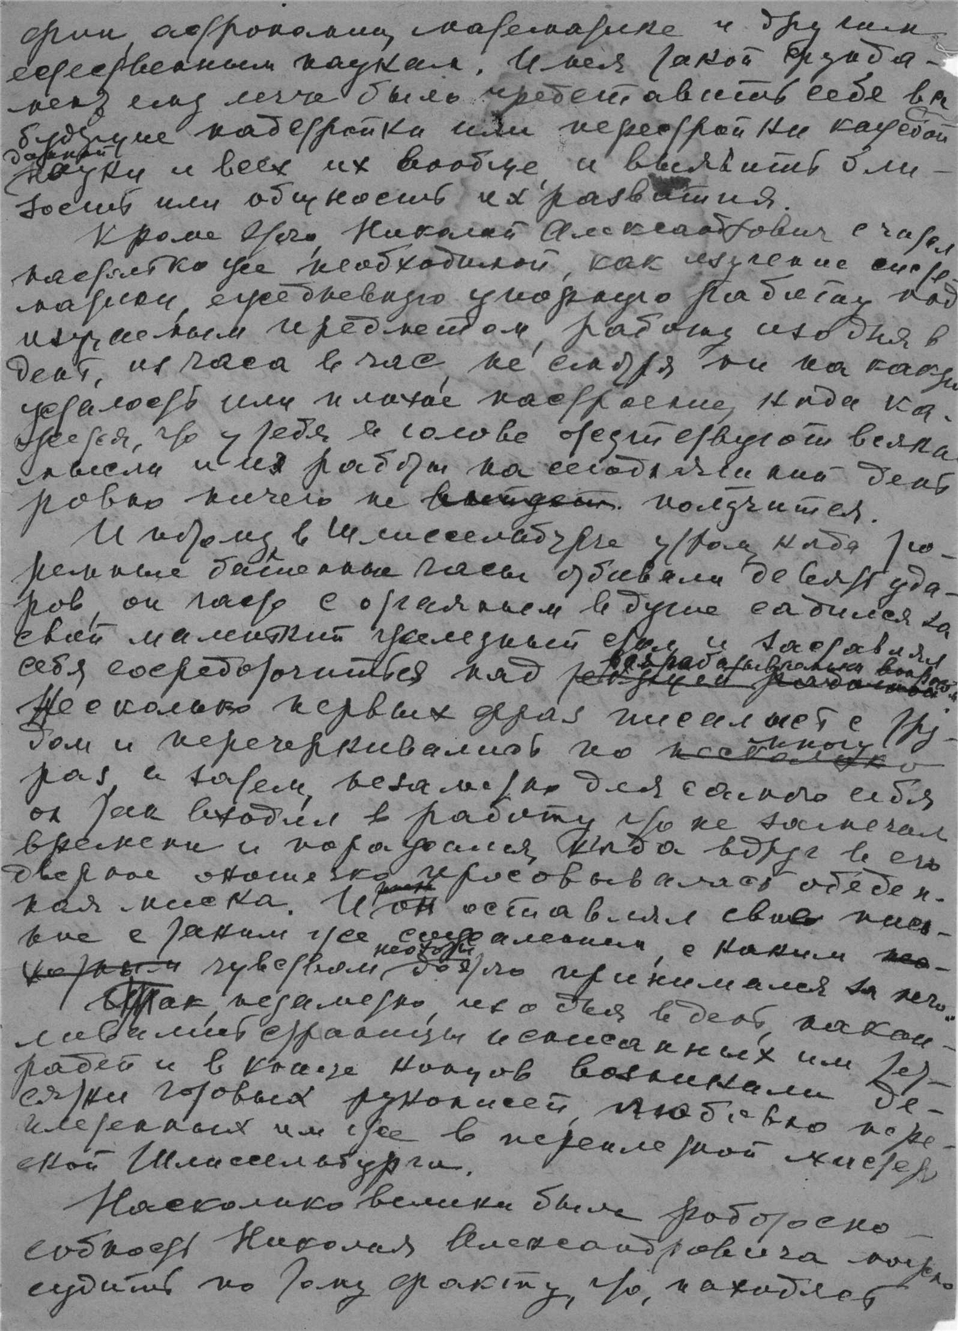 фии, астрономии, математике и другим
естественным наукам. Имея такой фунда-
мент ему легче было представить себе все
будущие надстройки или перестройки каждой
данной
науки и всех их вообще, и выявить бли-
зость или общность их развития.
Кроме того, Николай Александрович считал
настолько же необходимой, как изучение систе-
матики, ежедневную упорную работу над
изучаемым предметом, работу изо дня в
день, из часа в час, не смотря ни на какую
усталость или плохое настроение, когда ка-
жется, что у тебя в голове отсутствуют всякие
мысли и из работы на сегодняшний день
ровно ничего не выйдет. получится.
И потому в Шлиссельбурге утром, когда тю-
ремные башенные часы отбивали девять уда-
ров, он часто с отчаяньем в душе садился за
свой маленький железный стол и заставлял
разрабатываемым вопросом.
себя сосредоточиться над текущей работой.
Несколько первых фраз писались с тру-
дом и перечеркивались по
много
несколько
раз, а затем, незаметно для самого себя
он так входил в работу, что не замечал
времени и поражался, когда вдруг в его
дверное окошечко просовывалась обеден-
ная миска. И он оставлял свое писа-
ние с таким же сожалением, с каким
чувством неохоты до этого принимался за него.
Так, незаметно, изо дня в день, накап-
ливались страницы исписанных им тет-
радей и в конце концов возникали де-
сятки готовых рукописей, любовно пере-
плетенных им же в переплетной мастер-
ской Шлиссельбурга.
Насколько велика была работоспо-
собность Николая Александровича можно
судить по тому факту, что, находясь